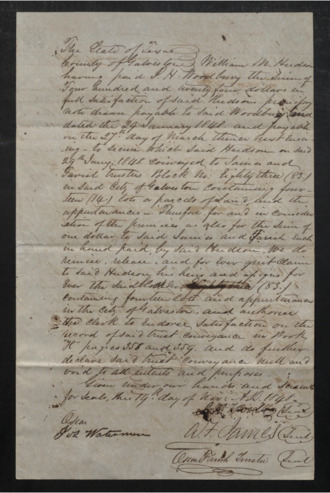 The State of Texas
County of Galveston } William M. Hudson
having paid J. H. Woodbury the Sum of
Four hundred and twenty four dollars in
full Satisfaction of said Hudson promissory
note drawn payable to said Woodbury and
dated the 29 January 1840 and payable
on the 27th day of March thence next ensu
ing - to secure which Said Hudson on said
29th Jany. 1840 conveyed to James and
Parish trustees Block No. Eighty three (83)
in said City of Galveston containing four-
teen (14) lots or parcels of land, and the
appurtenances - Therefore for and in consider
ation of the premises as also for the sum of
one dollar to said James and Parish each
in hand paid by said Hudson, we do
remise, release, and for ever quit claim
to said Hudson, his heirs and assigns for
Ever the said Block (83)
containing fourteen lots and appurtenances
in the City of Galveston, and authorise
the clerk to endorse Satisfaction on the
record of said trust conveyance in Book
pages and do further
declare said trust conveyance null and
void to all intents and purposes
Given under our hands and Scrawls
for Seals, this 19th day of Nov. A.D. 1841
J. H. Seal
A. F. James Seal
Parish Trustee Seal
Waterman